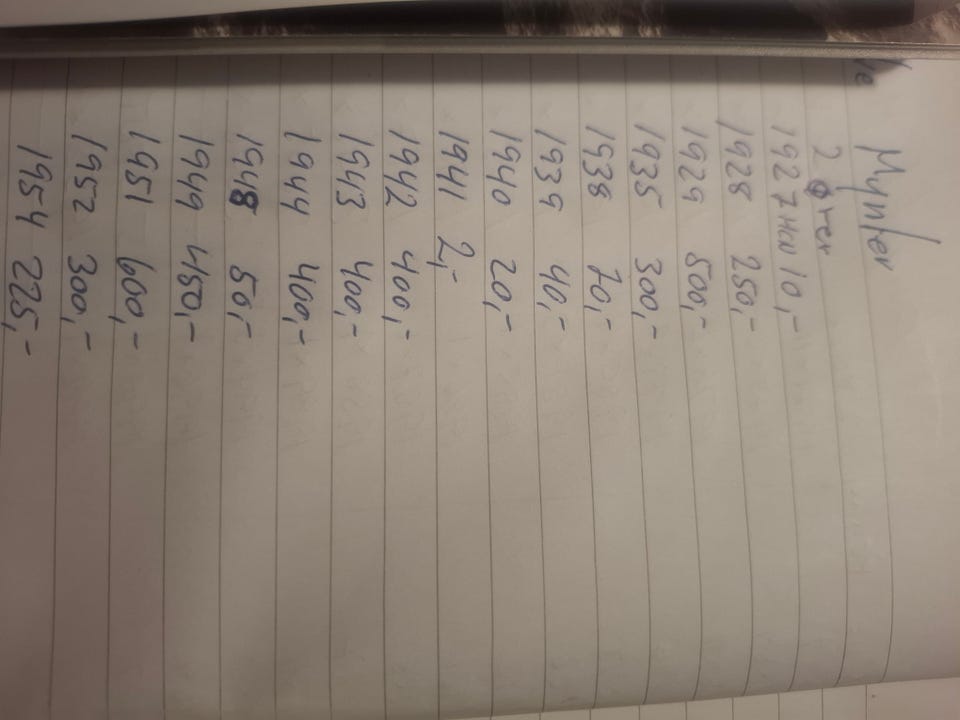 Mynter
2 ører
1927 HCN 10,-
1928 250,-
1929 500,-
1935 300,-
1938 70,-
1939 40,-
1940 20,-
1941 2,-
1942 400,-
1943 400,-
1944 400,-
1948 50,-
1949 450,-
1951 600,-
1952 300,-
1954 225,-